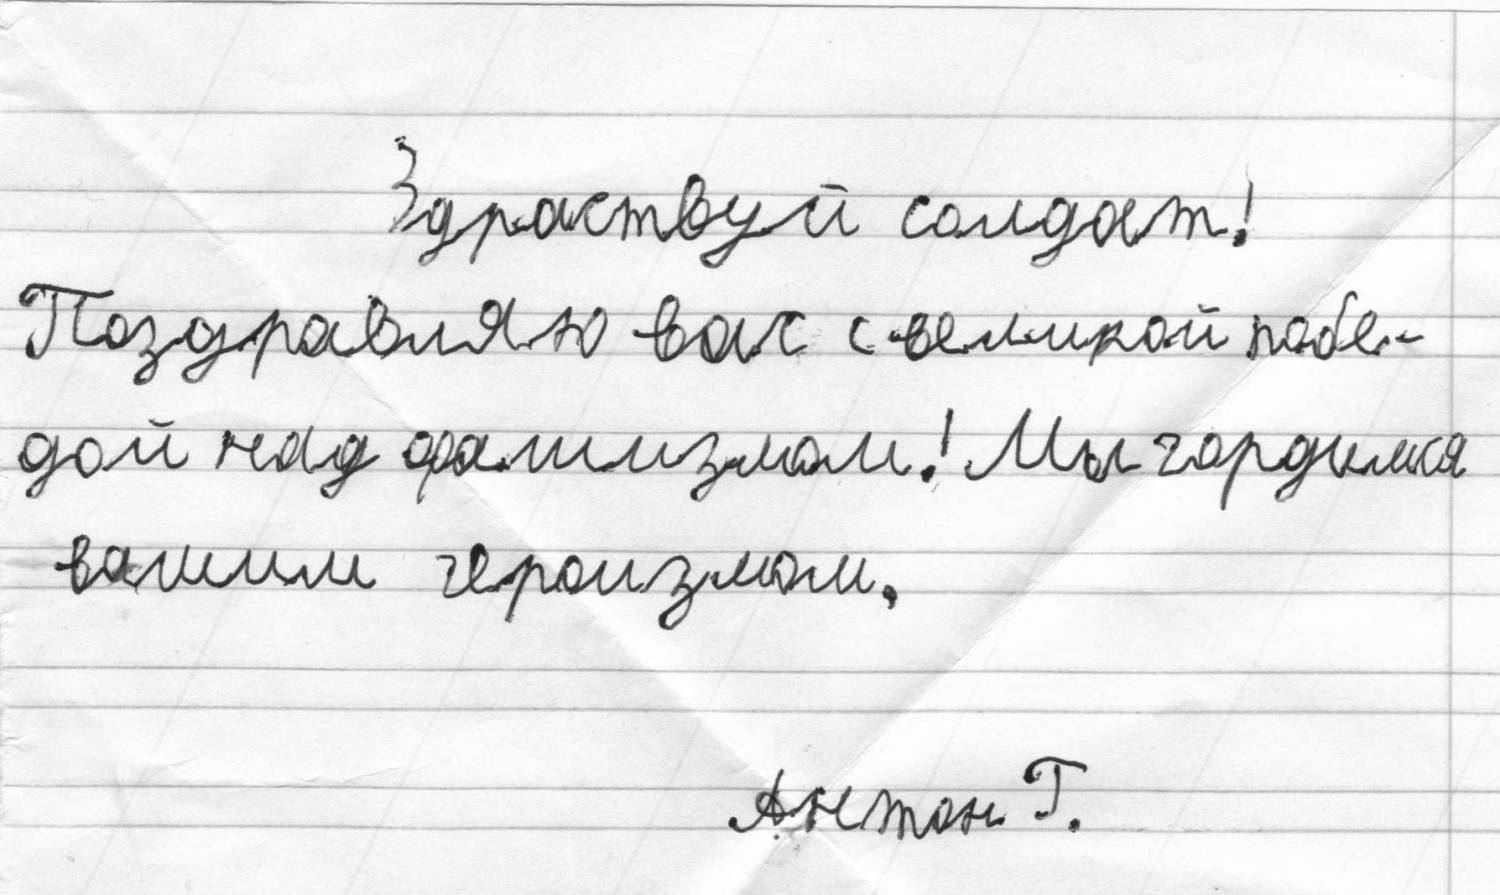 Здраствуй солдат!
Поздравляю вас с великой побе-
дой над фашизмом! Мы гордимся
вашим героизмом.
Антон Г.